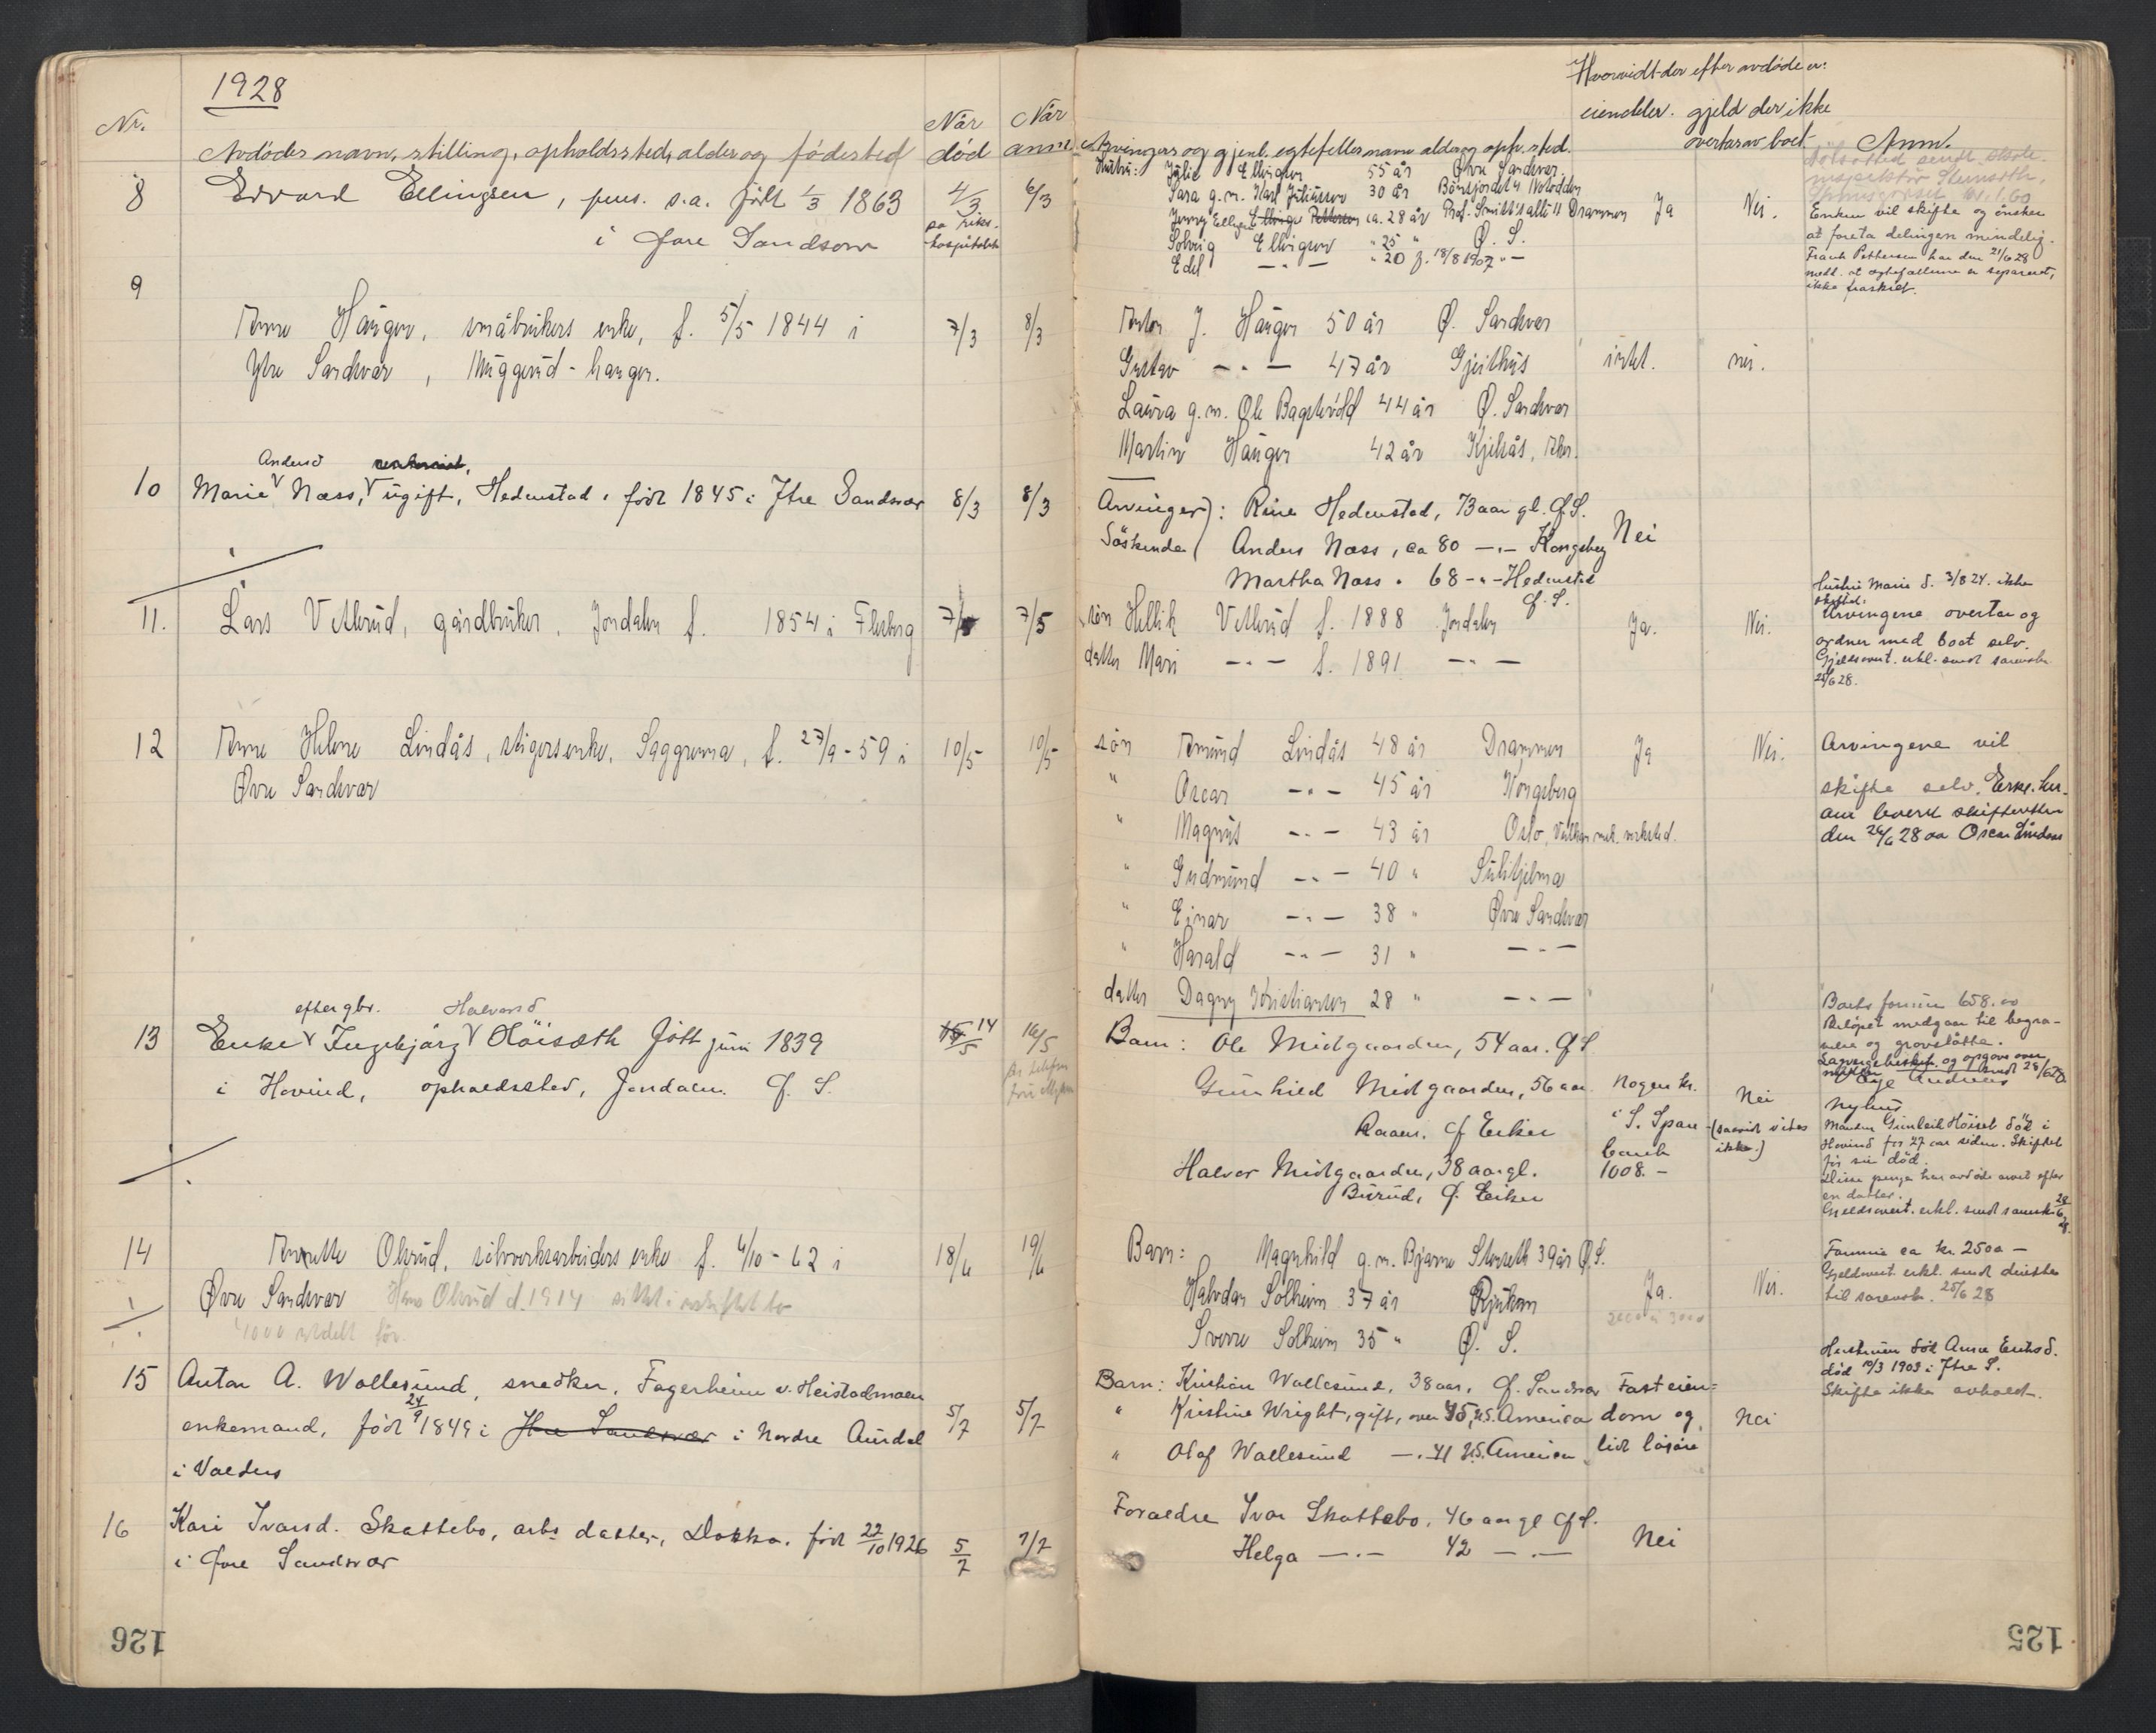 1928
Nr.
Avdødes navn, stilling, opholdssted, alder og fødested
Når død
Når anm.
8 Edvard Ellingsen, pens. s.a. født 1/3 1863 4/3 6/3
i Øvre Sandsvær
på riks-
hospitalet
9
Anne Haugen, småbrukers enke, f. 5/5 1844 i 7/3 8/3
Ytre Sandsvær, Muggerud-haugen.
Andersd
10 Marie Næss, ugift, Hedenstad, født 1845 i Ytre Sandsvær 8/3 8/3
11. Lars Vetlerud, gårdbruker, Jondalen f. 1854 i Flesberg 7/5 7/5
12 Anne Helene Lindås, stigers enke, Saggrenna, f. 27/9-59 i 10/5 10/5
Øvre Sandsvær
efter gbr. Halvorsd
13 Enke Ingebjørg Høisæth født juni 1839 14/5 16/5
i Hovind, opholdssted, Jondalen. Ø. S.
14 Annette Olsrud, sølvverksarbeiders enke f. 4/10-62 i 18/6 19/6
Øvre Sandsvær Hans Olsrud d. 1914
15 Anton A. Wallesund, snedker, Fagerheim v. Heistadmoen
enkemand, født 24/9 1849 i Ytre Sandsvær i Nordre Aurdal 5/7 5/7
i Valdres
16 Kari Ivarsd. Skattebo, arbs datter, Dokka, født 22/10 1926 5/7 7/7
i Øvre Sandsvær
126
Hvorvidt der efter avdøde er:
eiendeler. gjeld der ikke
overtar av boet
Arvingers og gjenl. egtefelles navn alder og oph. sted.
Anm.
Hustru: Julie Ellingsen 55 år Øvre Sandsvær.
Sara g.m. Karl Juliussen 30 år Notodden
Jenny Ellingsen Pettersen ca. 28 år Prof. Smitts allé 11 Drammen Ja Nei.
Solveig Ellingsen " 25 " Ø. S.
Edel —"— " 20 f. 18/8 1907 "—
Enken vil skifte og ønsker
at foreta delingen mindelig.
Frank Pettersen har den 21/6 28
medd. at egtefællene er separert,
ikke fraskilt.
Anton J. Haugen 50 år Ø. Sandsvær
Gustav —"— 47 år Gjeithus intet. nei.
Laura g.m. Ole Bagstevold 44 år Ø. Sandsvær
Martin Haugen 42 år Kjelsås, Aker.
Arvinger: Rine Hedenstad, 73 aar gl. Ø.S.
Søskende Anders Næss, ca 80 —"— Kongsberg Nei
Martha Næss. 68 —"— Hedenstad
Ø.S.
søn Hellik Vetlerud f. 1888 Jondalen Ja. Nei.
datter Mari —"— f. 1891 —"—
Hustru Marie d. 3/8 24. ikke
skiftet.
Arvingene overtar og
ordner med boet selv.
Gjeldsovert. erkl. sendt sorenskr.
28/6 28.
søn Amund Lindås 48 år Drammen Ja Nei.
" Oscar —"— 45 år Kongsberg
" Magnus —"— 43 år Oslo, Vulkan mek. verksted.
" Gudmund —"— 40 " Sulitjelma
" Einar —"— 38 " Øvre Sandsvær
" Harald —"— 31 " —"—
datter Dagny Kristiansen 28 " —"—
Arvingene vil
skifte selv.
den 26/6 28 Oscar Lindaas
Barn: Ole Midtgaarden, 54 aar. Ø S.
Gunhild Midtgaarden, 56 aar. Nogen kr. Nei
Ø. Eiker i S. Spare- (saavidt vides
bank ikke.)
Halvor Midtgaarden, 38 aar gl. 1008.-
Burud, Ø. Eiker
Boets formue 658.00
Beløpet medgaar til begra-
velse og gravstøtte.
Manden Gunleik Høiset død i
Hovind for 27 aar siden. Skiftet
før sin død.
Disse penger har avdøde arvet efter
en datter.
Gjeldsovert. erkl. sendt sorenskr.
Barn: Magnhild g.m. Bjarne Stenseth 39 år Ø.S.
Halvdan Solheim 37 år Rjukan Ja. Nei.
Sverre Solheim 35 " Ø. S.
Formue ca kr. 2500 —
Gjeldsovert. erkl. sendt direkte
til sorenskr. 25/6 28
Barn: Kristian Wallesund, 38 aar, Ø. Sandsvær Fast eien=
" Kristine Wright, gift, over 45, U.S. America dom og Nei
" Olaf Wallesund —"— 41 U.S. America lidt løsøre
Hustruen død Anne Eriksd.
død 10/3 1903 i Ytre S.
Skifte ikke avholdt.
Foraeldre Ivar Skattebo, 46 aar gl Ø S. Nei
Helga —"— 42 —"—
125